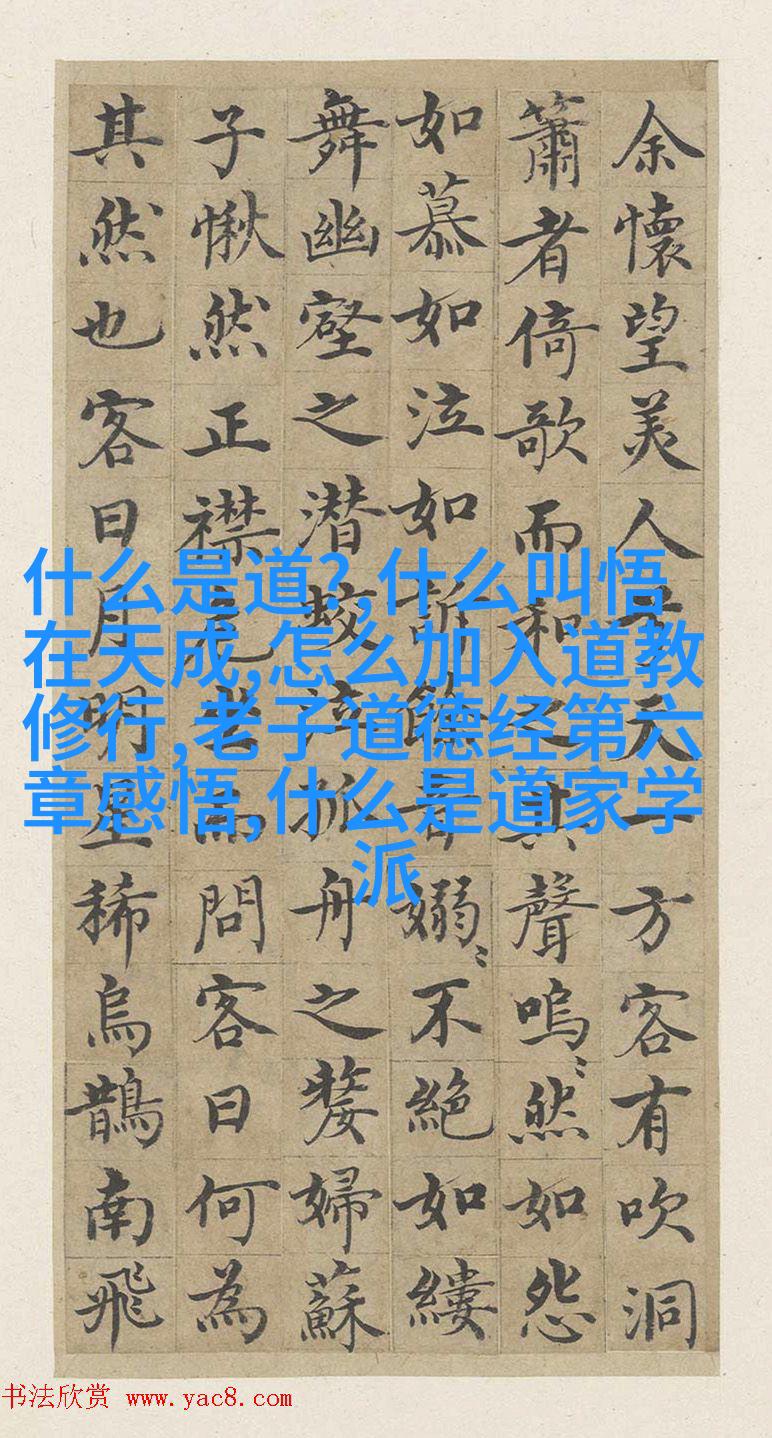 余懷望美人兮天一方客有吹洞
簫者倚歌而和之其聲嗚〻然如怨
如慕如泣如訴餘音嫋〻不絕如縷
舞幽壑之潜蛟泣孤舟之嫠婦蘇
子愀然正襟危坐而問客曰何為
其然也客曰月明星稀烏鵲南飛
什么是道?,什么叫悟
在天成,怎么加入道教
修行,老子道德经第六
章感悟,什么是道家学
派
书法欣赏 www.yac8.com